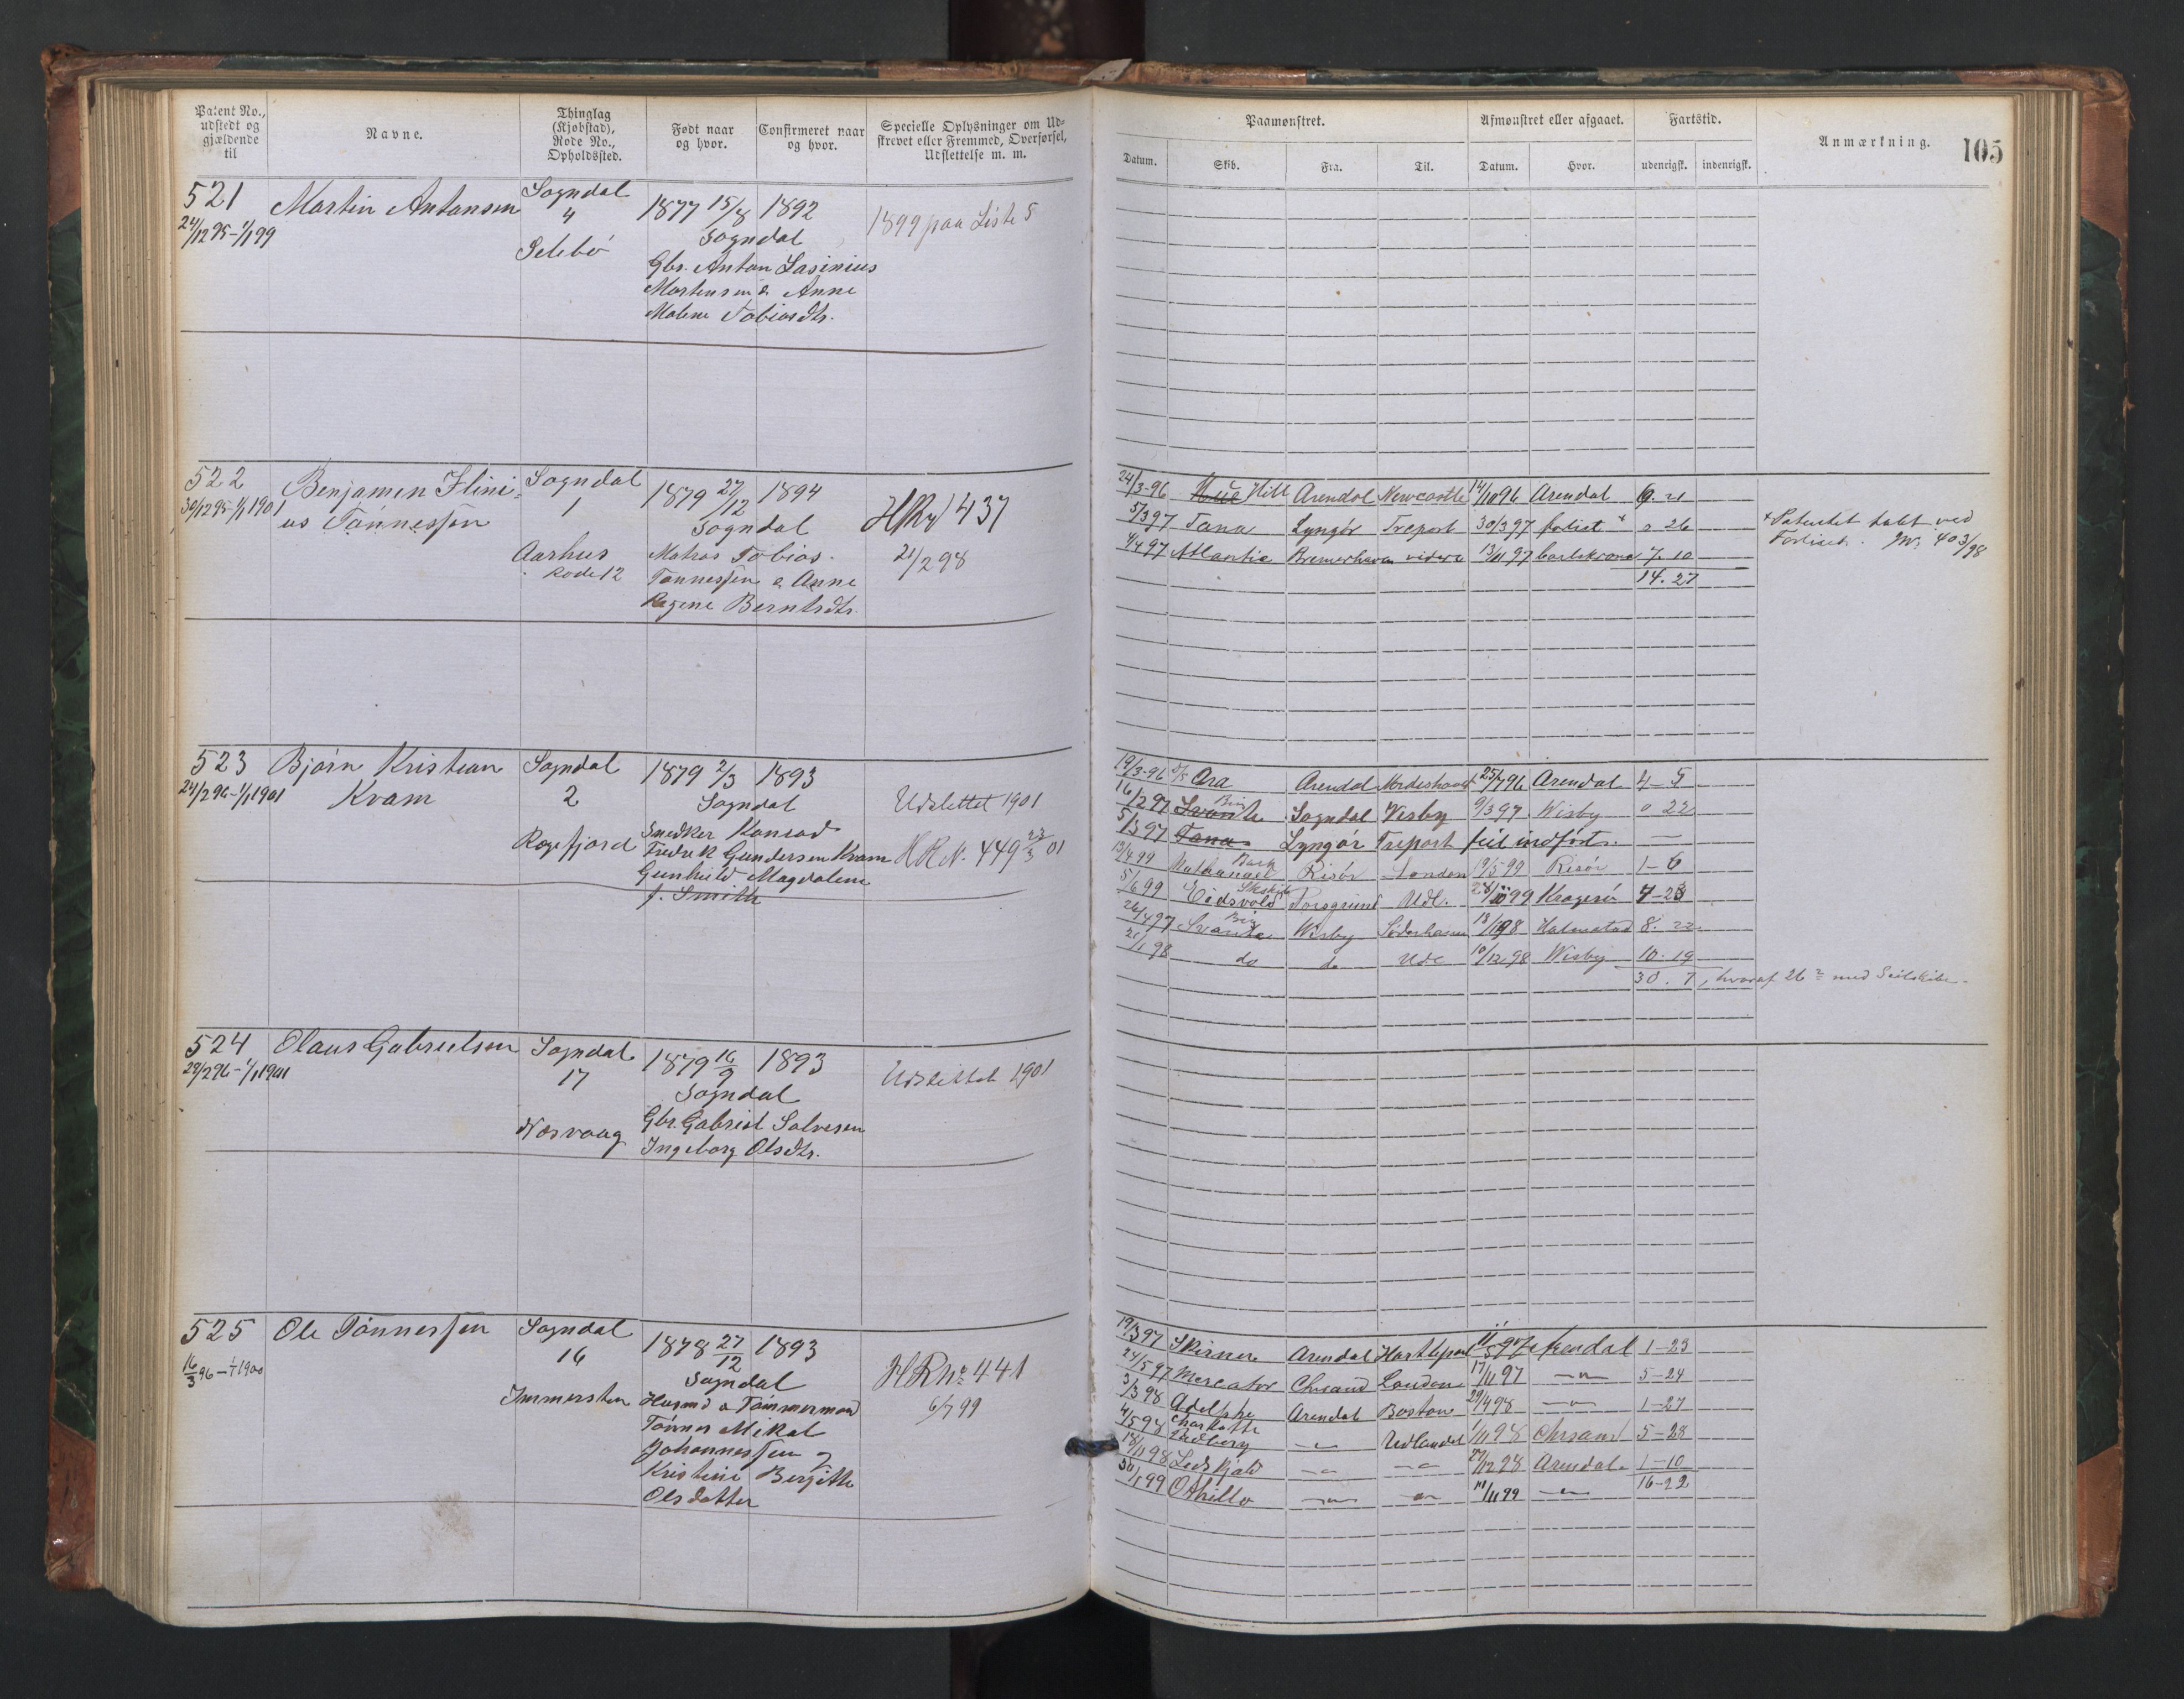 Patent No., udstedt og gjældende til
Navne.
Thinglag (Kjøbstad), Rode No., Opholdssted.
Født naar og hvor.
Confirmeret naar og hvor.
Specielle Oplysninger om Udskrevet eller Fremmed, Overførsel, Udslettelse m. m.
521
24/12 95 - 1/1 99
Martin Antonsen
Sogndal
4
Selebø
1877 15/8
1892
Sogndal
Gbr. Anton Lasinius
Mortensen & Anne
Malene Tobiasdtr.
1899 paa Liste 5
522
30/12 95 - 1/1 1901
Benjamen Flini-
us Tønnessen
Sogndal
1
Aarhus
Rode 12
1879 27/12
1894
Sogndal
Matros Tobias
Tønnessen & Anne
Regine Berntsdtr.
HRy 437
21/2 98
523
24/2 96 - 1/1 1901
Bjørn Kristian
Kvam
Sogndal
2
Rægefjord
1879 2/3
1893
Sogndal
Snedker Konrad
Fredrik Gundersen Kvam
Gunhild Magdalene
f. Smith
Udslettet 1901
HR N. 449 22/3 01
524
29/2 96 - 1/1 1901
Olaus Gabrielsen
Sogndal
17
Nesvaag
1879 16/9
1893
Sogndal
Gbr. Gabriel Salvesen
Ingeborg Olsdtr.
Udslettet 1901
525
16/3 96 - 1/1 1900
Ole Tønnessen
Sogndal
16
Immersten
1878 27/12
1893
Sogndal
Husmd & Tømmermand
Tønnes Mikal
Johannessen og
Kristine Bergitte
Olsdatter
HR no 441
6/7 99
105
Paamønstret.
Afmønstret eller afgaaet.
Fartstid.
Anmærkning.
Datum.
Skib.
Fra.
Til.
Datum.
Hvor.
udenrigsk.
indenrigsk.
24/3-96 Hill Arendal Newcastle 14/10 96 Arendal 6. 21
5/3 97 Tana Lyngør Treport 30/3 97 forlist * 0 26
4/4 97 Atlantic Bremerhaven videre 13/11 97 Carlskrona 7. 10
14. 27
* Patentet tabt ved
Forliset. JN. 403/98
19/3-96 Ara Arendal 25/7 96 Arendal 4-5
16/2 97 Brig Svante Sogndal Wisby 9/3 97 Wisby 0 22
5/3 97 Tana Lyngør Treport feil indført. -
13/4 99 Bark Nathanael Risør London 19/5 99 Risør 1-6
5/6 99 Skskib Eidsvold Porsgrund Udl. 28/10 99 Kragerø 4-23
26/4 97 Brig Svante Wisby Söderhamn 18/1 98 Halmstad 8. 22
21/1 98 do do Udl 10/12 98 Wisby 10. 19
30. 7, hvoraf 26 med Seilskibe.
19/3 97 Skirner Arendal Hartlepool 11/5 97 Arendal 1-23
24/5 97 Mercator Chrsand London 17/11 97 -"- 5-24
3/3 98 Adelphe Arendal Boston 29/4 98 -"- 1-27
4/5 98 Charlotte Padbury -"- Udlandet 1/11 98 Chrsand 5-28
18/11 98 Ledskjald -"- -"- 27/12 98 Arendal 1-10
30/1 99 Othillo -"- -"- 11/11 99 -"- 16-22